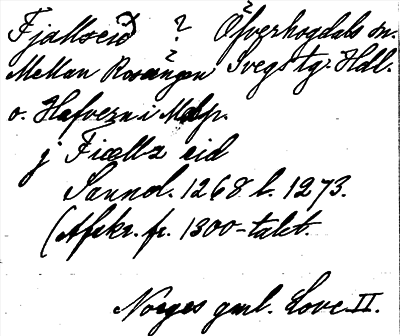 Fjallseid ? Öfverhogdals sn.
Mellan Rosängen Svegs tg. Hdl.
o. Hafvern i Mdp.
j Fiællz eid
Sannol. 1268 l. 1273.
(Afskr. fr. 1300-talet.
Norges gml. Love II.